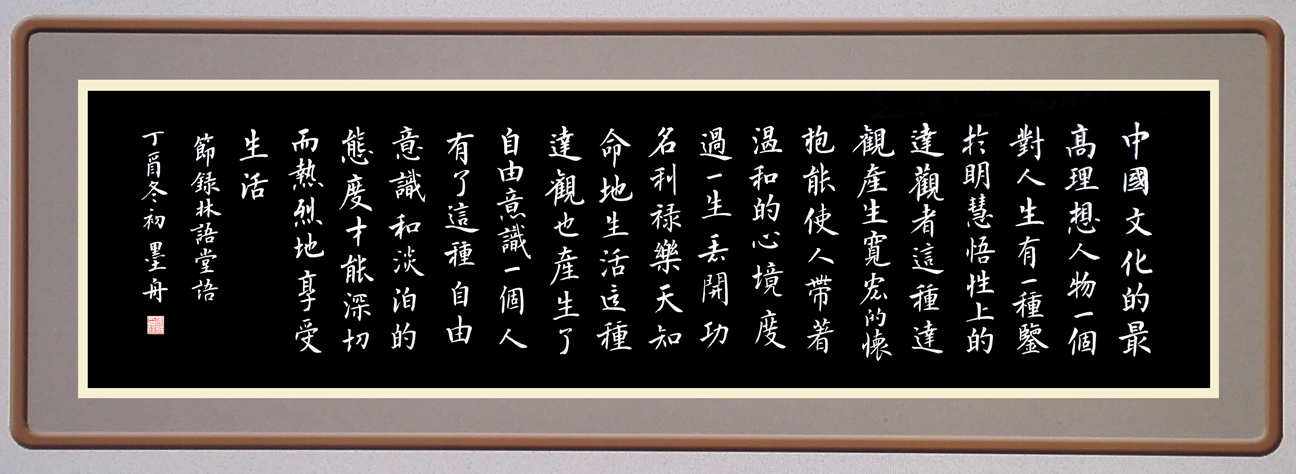 中國文化的最
高理想人物一個
對人生有一種鑒
於明慧悟性上的
達觀者這種達
觀產生寬宏的懷
抱能使人帶著
温和的心境度
過一生丟開功
名利禄樂天知
命地生活這種
達觀也產生了
自由意識一個人
有了這種自由
意識和淡泊的
態度才能深切
而熱烈地享受
生活
節錄林語堂語
丁酉冬初墨舟